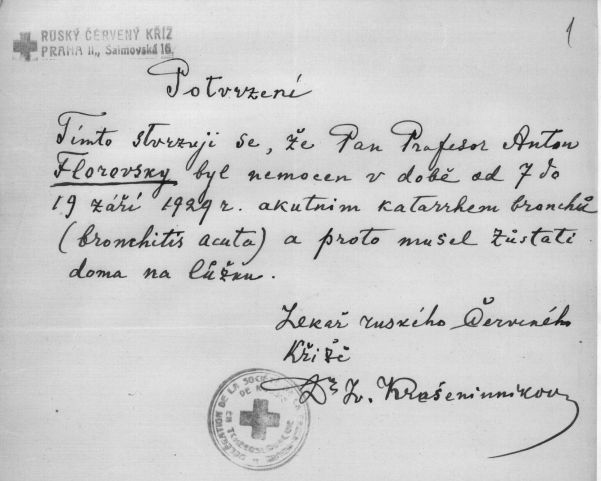 1
RUSKÝ ČERVENÝ KŘÍŽ
PRAHA II., Salmovská 16.
Potvrzení
Tímto stvrzuji se, že Pan Profesor Anton
Florovsky byl nemocen v době od 7 do
19 září 1929 r. akutnim katarrhem bronchů
(bronchitis acuta) a proto musel zůstati
doma na lůžku.
Lekař ruského Červeného
Kříže
Dr Iv. Krašeninnikov
DÉLÉGATION DE LA SOCIÉTÉ